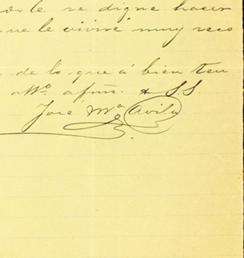 se digne hacer
que le viviré muy reco
de lo que á bien ten
Atto. afmo. & S.S.
José Ma Avila